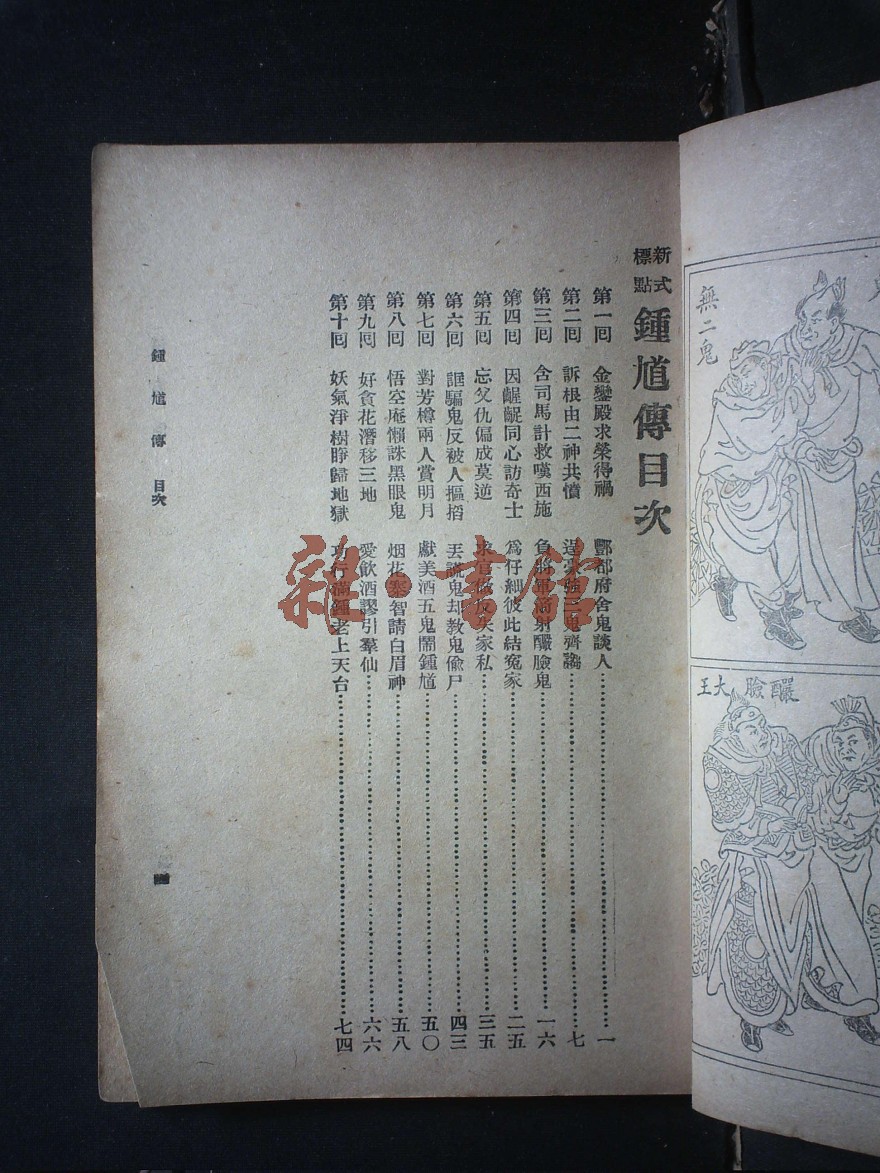 無二鬼
釅臉大王
新式標點 鍾馗傳目次
第一回 金鑾殿求榮得禍 酆都府舍鬼談人……一
第二回 訴根由二神共憤 逞豪強三鬼齊謅……七
第三回 含司馬計救嘆西施 負將軍箭射釅臉鬼……一六
第四回 因齷齪同心訪奇士 爲仔細彼此結冤家……二五
第五回 忘父仇偏成莫逆 求官做反失家私……三五
第六回 誆騙鬼反被人摳掐 丟謊鬼却教鬼偷尸……四三
第七回 對芳樽兩人賞明月 獻美酒五鬼鬧鍾馗……五〇
第八回 悟空庵懶誅黑眼鬼 烟花寨智請白眉神……五八
第九回 好貪花潛移三地 愛飲酒謬引羣仙……六六
第十回 妖氣淨樹睜歸地獄 功行滿鍾老上天台……七四
鍾馗傳 目次
雜·書館